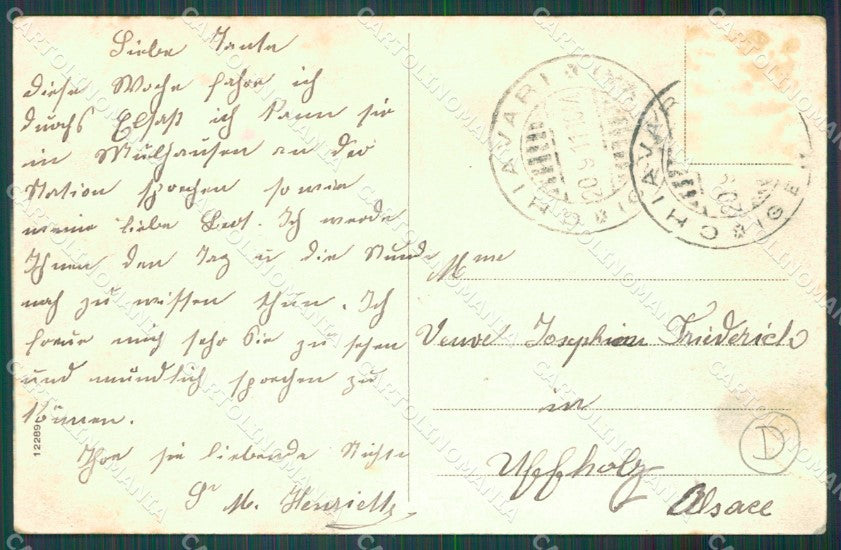 Liebe Tante
diese Woche fahre ich
durchs Elsaß ich kann sie
in Mülhausen an der
Station sprechen sowie
meine liebe Leot. Ich werde
Ihnen den Tag u die Stunde
noch zu wissen thun. Ich
freue mich sehr Sie zu sehen
und mündlich sprechen zu
können.
Ihre sie liebende Nichte
Sr M. Henriette
12289
CHIAVARI
CHIAVARI
Mme
Veuve Josephine Friederich
in
Uffholz
Alsace
D
CARTOLINOMANIA